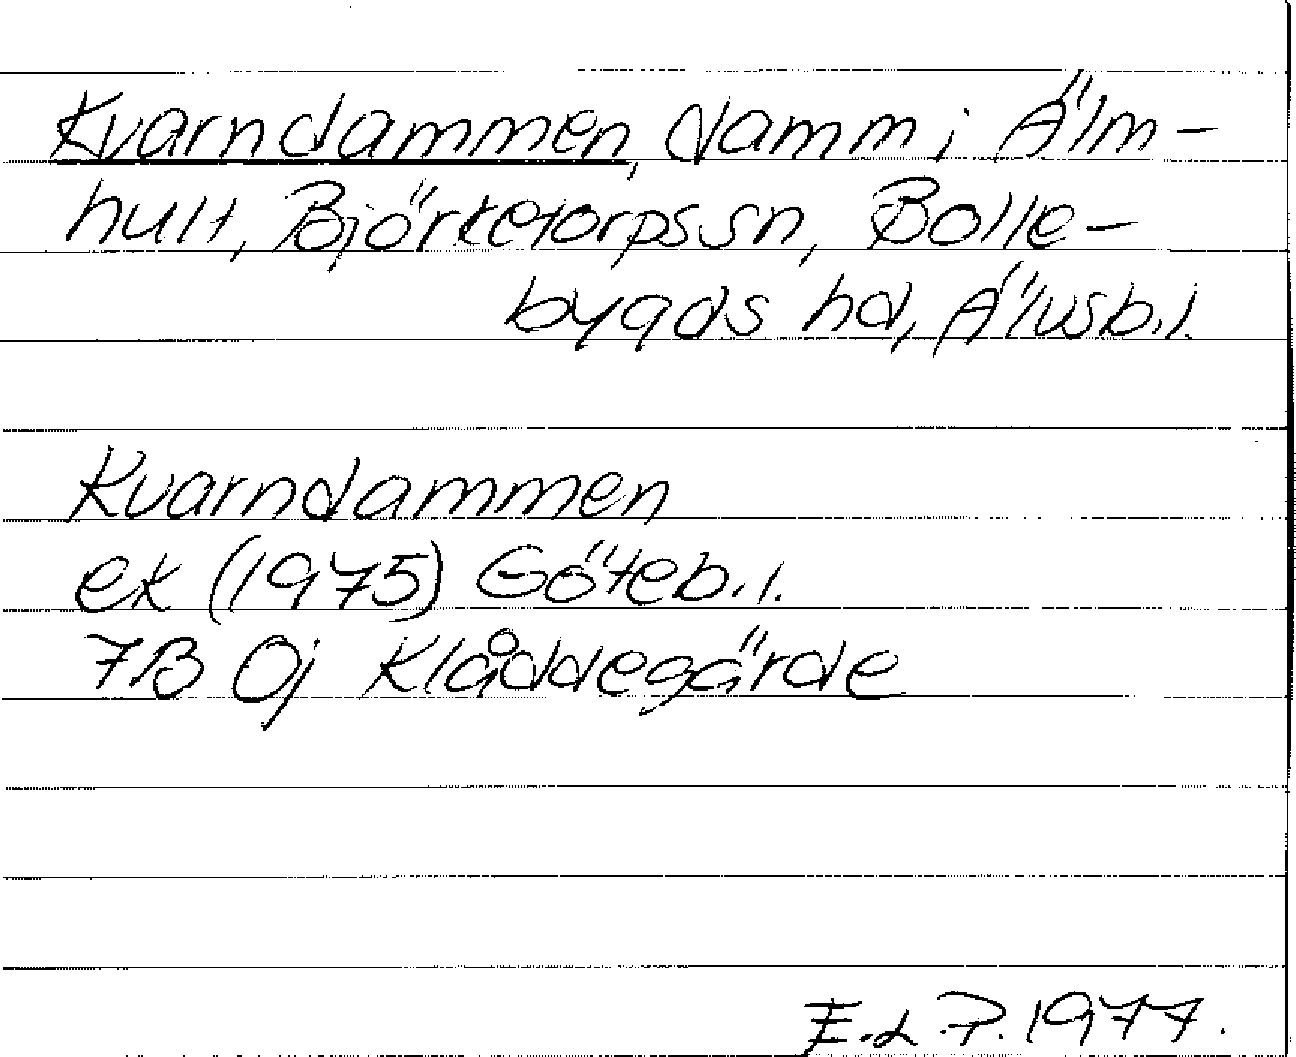 Kvarndammen, damm i Älm-
hult, Björketorps sn, Bolle-
bygds hd, Älvsb. l.
Kvarndammen
ek (1975) Göteb. l.
7B 0j Klåddegärde
E.L.P. 1977.